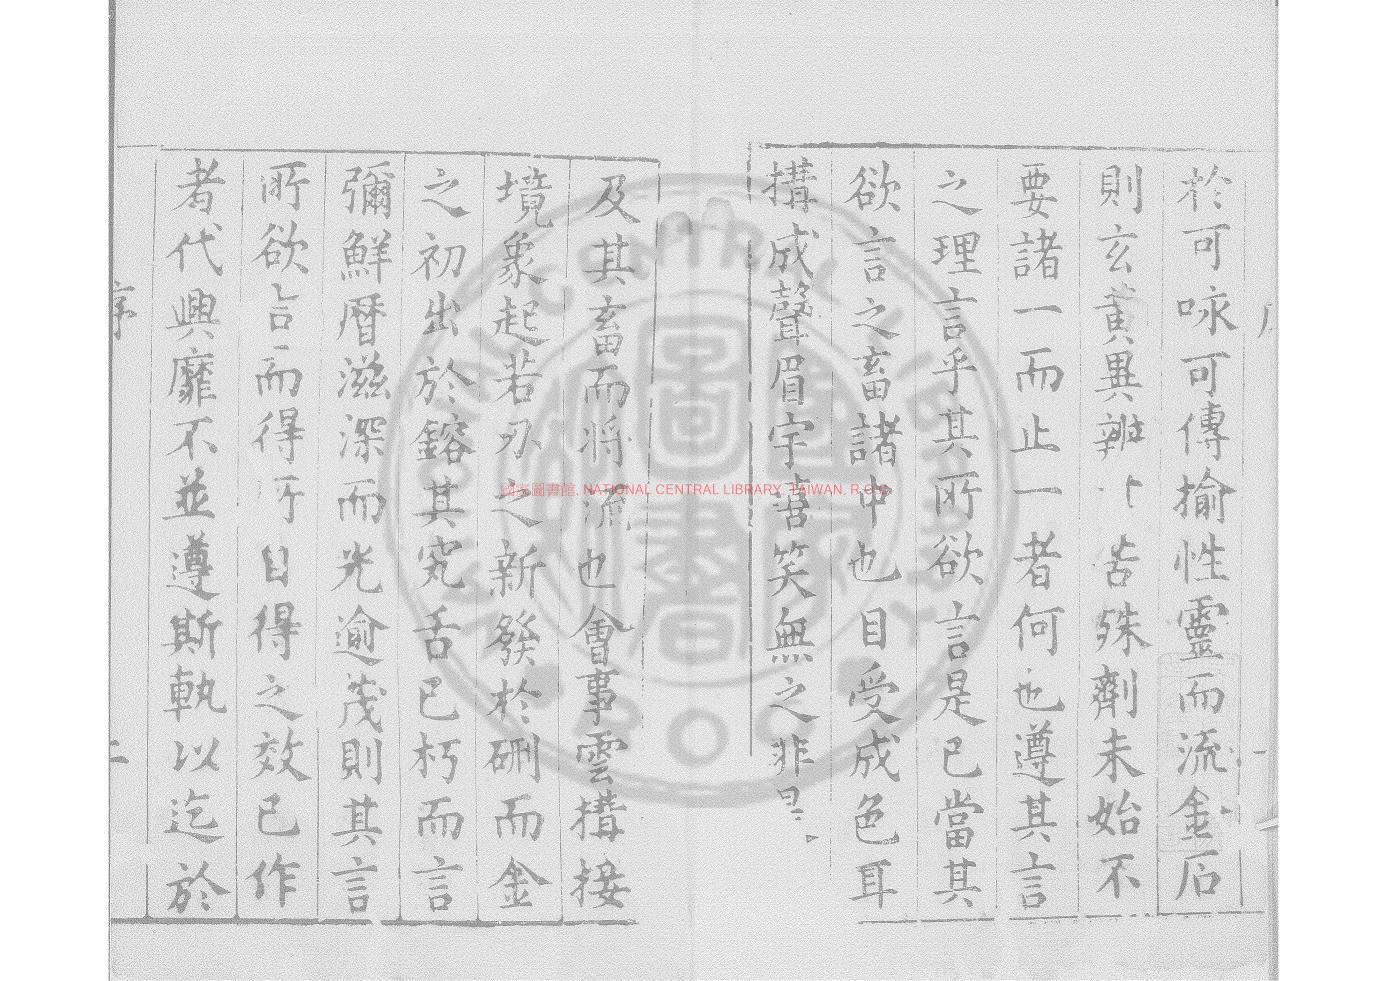 於可咏可傳揄性靈而流金石
則玄黃異辨 苦殊劑未始不
要諸一而止一者何也遵其言
之理言乎其所欲言是已當其
欲言之畜諸中也目受成色耳
搆成聲眉宇 笑無之非是
及其畜而將流也會事雲搆接
境象起若 之新發於硎而金
之初出於鎔其究舌已朽而言
彌鮮曆滋深而光逾茂則其言
所欲言而得所自得之效已作
者代興靡不並遵斯執以迄於
序
二
國家圖書館, NATIONAL CENTRAL LIBRARY, TAIWAN, R.O.C